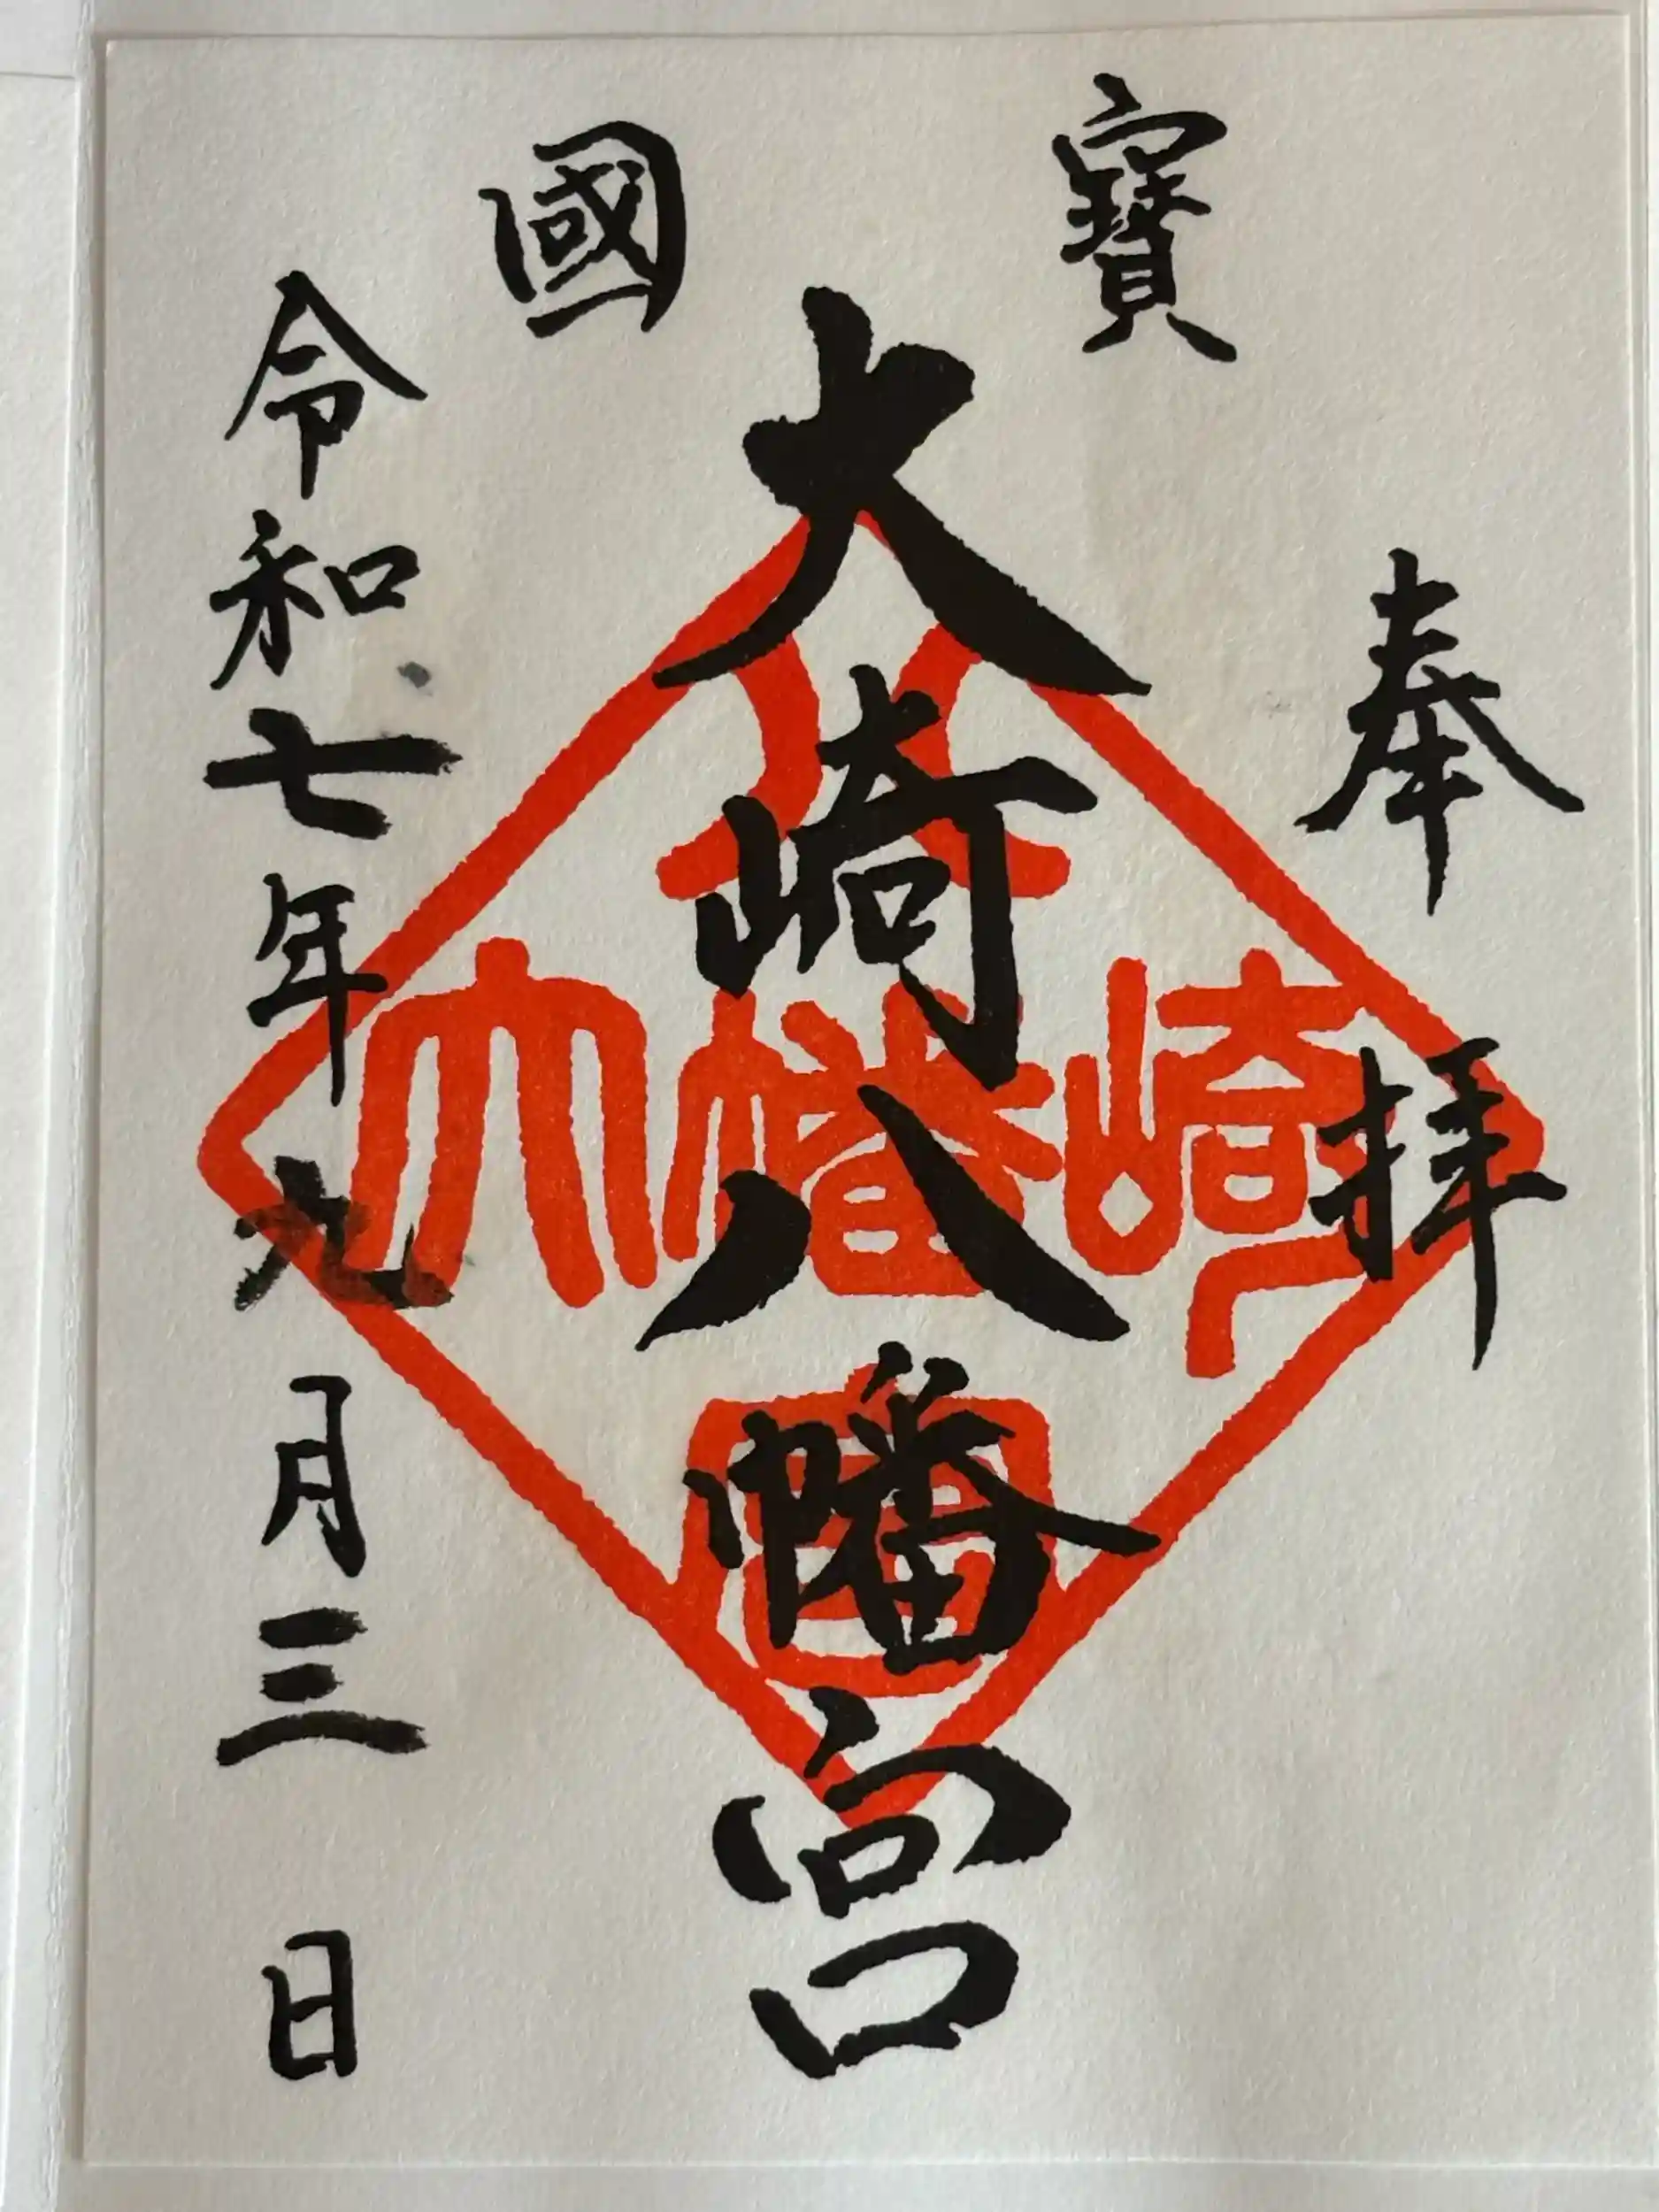 奉拝
國寶
大崎八幡宮
令和七年九月三日
大崎八幡宮